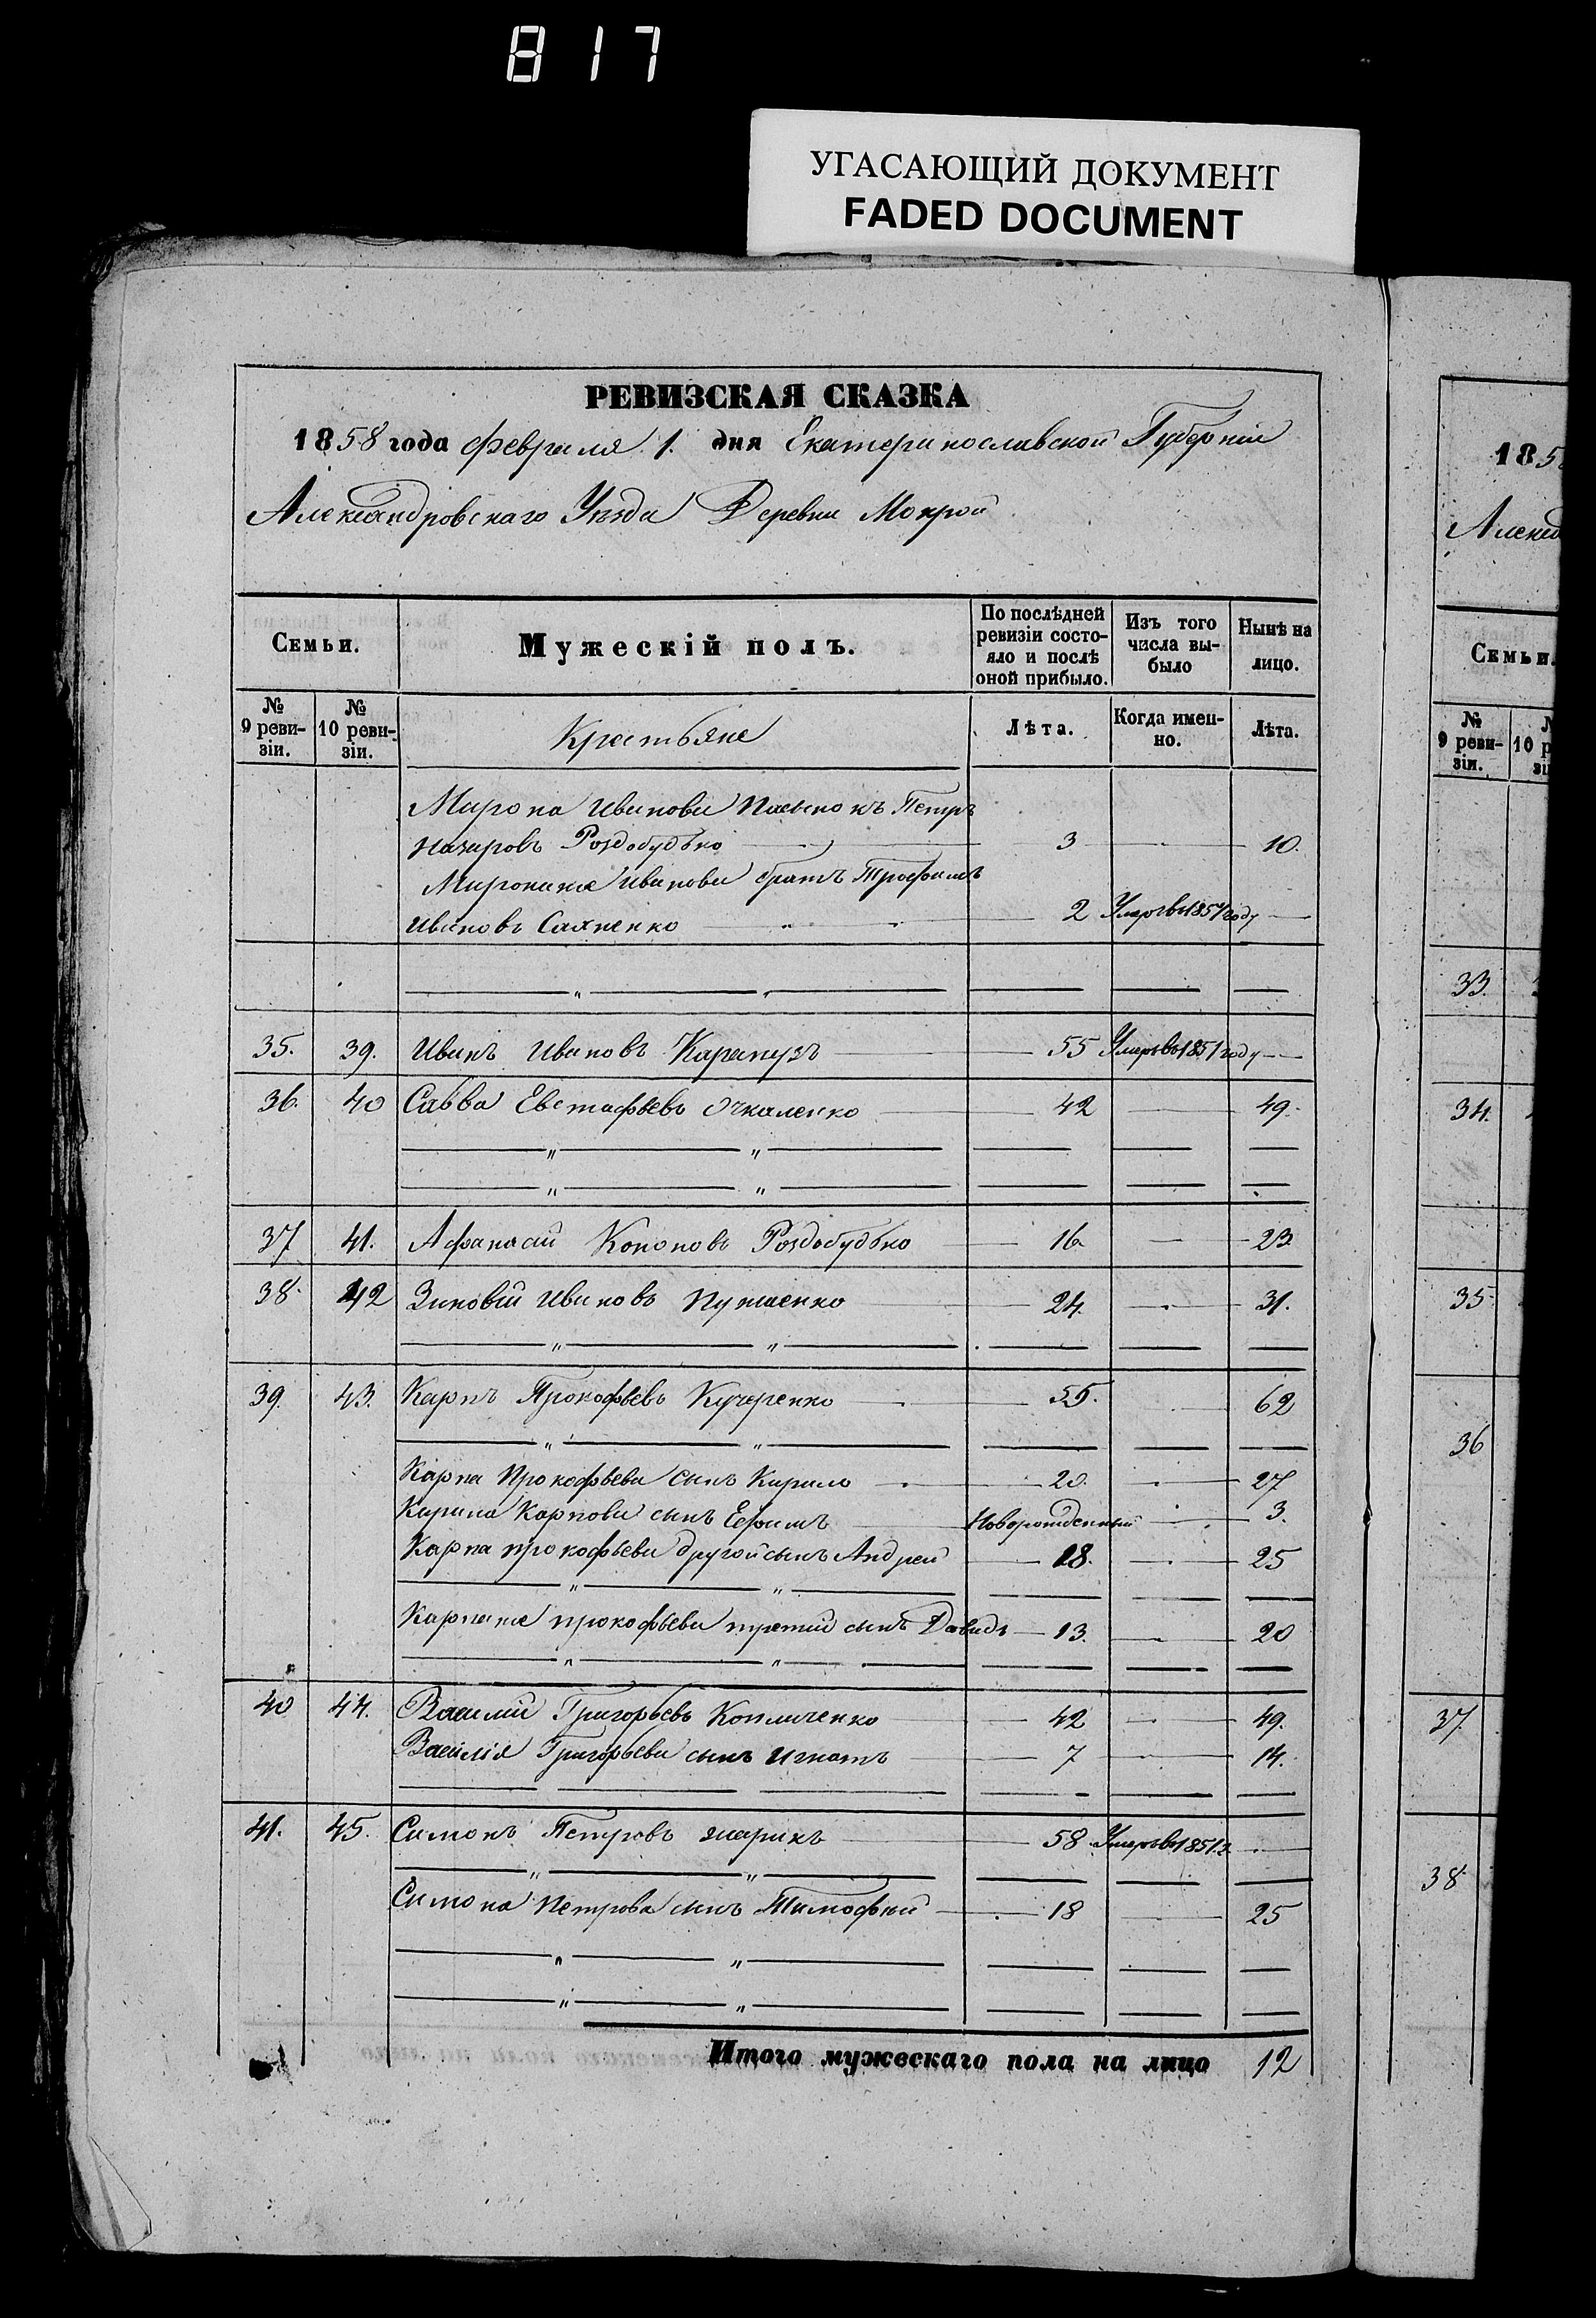 817
УГАСАЮЩИЙ ДОКУМЕНТ
FADED DOCUMENT
РЕВИЗСКАЯ СКАЗКА
1858 года февраля 1. дня Екатеринославской Губерніи
Александровскаго Уѣзда Деревни Мокрой
Семьи.
Мужескій полъ.
По послѣдней ревизіи состояло и послѣ оной прибыло.
Изъ того числа выбыло
Нынѣ на лицо.
№ 9 ревизіи.
№ 10 ревизіи.
Крестьяне
Лѣта.
Когда именно.
Лѣта.
Мирона Иванова Пасынокъ Петръ
Назаровъ Роздобудько 3 10.
Миронаже Иванова братъ Трофимъ
Ивановъ Саяненко 2 Умеръ въ 1857 году
35. 39. Иванъ Ивановъ Карапузъ 55 Умеръ въ 1851 году
36. 40 Савва Евстафьевъ Очкаленко 42 49.
37 41. Афанасий Кононовъ Роздобудько 16 23
38. 42 Зиновій Ивановъ 24. 31.
39. 43. Карпъ Прокофьевъ Кучеренко 55. 62
Карпа Прокофьева сынъ Кирило 20. 27
Кирила Карпова сынъ Ефимъ Новорожденный 3.
Карпа прокофьева другой сынъ Андрей 18. 25
Карпаже прокофьева третий сынъ Давидъ 13. 20
40 44. Василий Григорьевъ 42 49.
Василія Григорьева сынъ Игнатъ 7 14.
41. 45. Симонъ Петровъ 58 Умеръ въ 1851 г.
Симона Петрова сынъ Тимофей 18 25
Итого мужескаго пола на лицо 12
185
Алекс
Семьи.
№ 9 ревизіи.
10 р
33.
34.
35
36
37
38